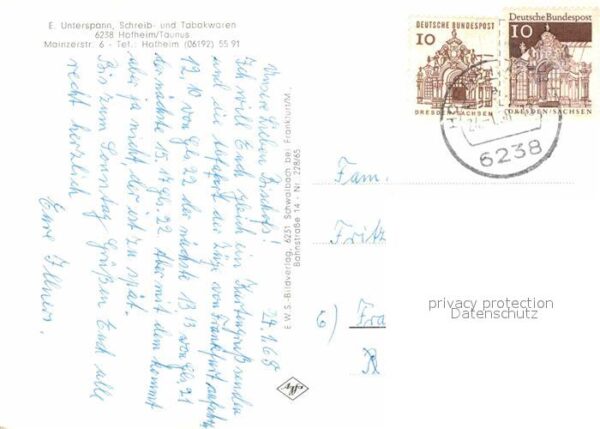 E. Unterspann, Schreib- und Tabakwaren
6238 Hofheim/Taunus
Mainzerstr. 6 - Tel.: Hofheim (06192) 55 91
DEUTSCHE BUNDESPOST
10
DRESDEN-SACHSEN
Deutsche Bundespost
10
DRESDEN/SACHSEN
6238
24.1.68
Unsere lieben
Ich will Euch gleich im Kartengruß senden
und die Abfahrt der Züge von Frankfurt
12,10 von Gls 22 der nächste 13,13 von Gls 21
der nächste 15,17 Gls 22. Aber mit dem kommt
aber ja nicht, der ist zu spät.
Bis zum Sonntag Grüßen Euch alle
recht herzlich
Eure
E.W.S.-Bildverlag, 6231 Schwalbach bei Frankfurt/M.,
Bahnstraße 14 - Nr. 228/65
Fam.
Fritz
6) Fra
privacy protection
Datenschutz